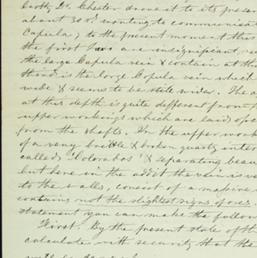 Dr. Chester drove it to its pres
about 30 ft. wanting to communica
Capula; to the present moment this
the first four are insignificant, ve
the large Capula vein & contain at tha
is the large Capula vein which
wide & seems to be still wider. The o
at this depth is quite different from t
upper workings which are laid op
from the shafts. In the upper work
of a very brittle & broken quartz inter
called "Colorados" & separating beau
but here in the adit the vein is ve
to the walls, consist of a massive
contains not the slightest signs of ores
statement you can make the follow
First. By the present state of th
calculate with security that the